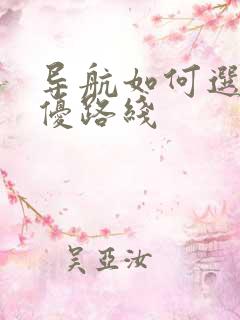 导航如何選
優路綫
吴亞汝